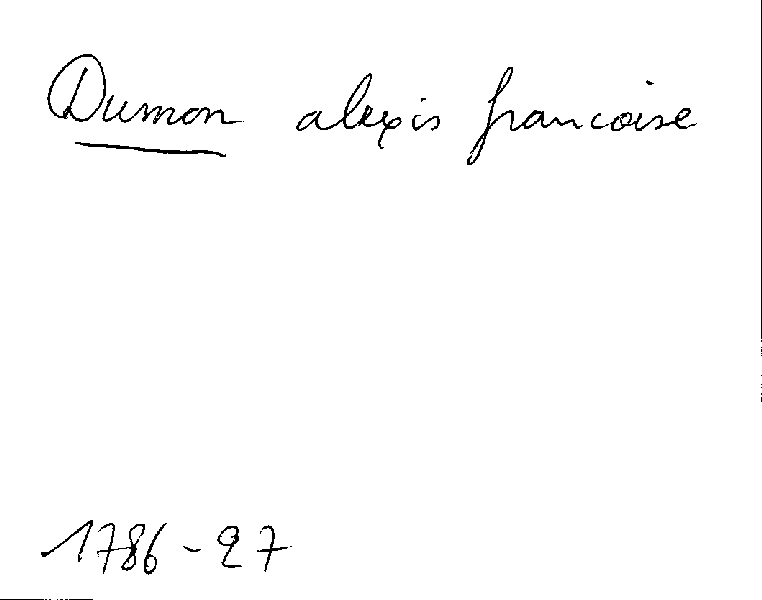 Dumon alexis francoise
1786-27